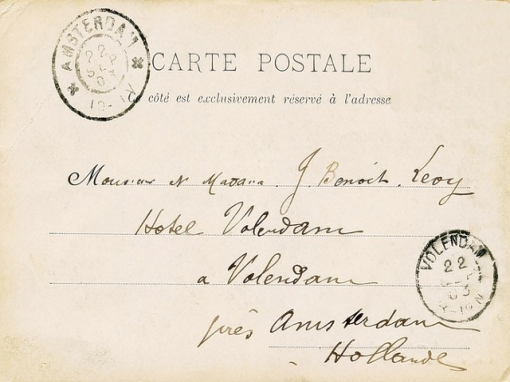 AMSTERDAM
22
CARTE POSTALE
Ce côté est exclusivement réservé à l'adresse
Monsieur et Madame J. Benoit. Levy
Hotel Volendam
a Volendam
près Amsterdam
Hollande
VOLENDAM
22